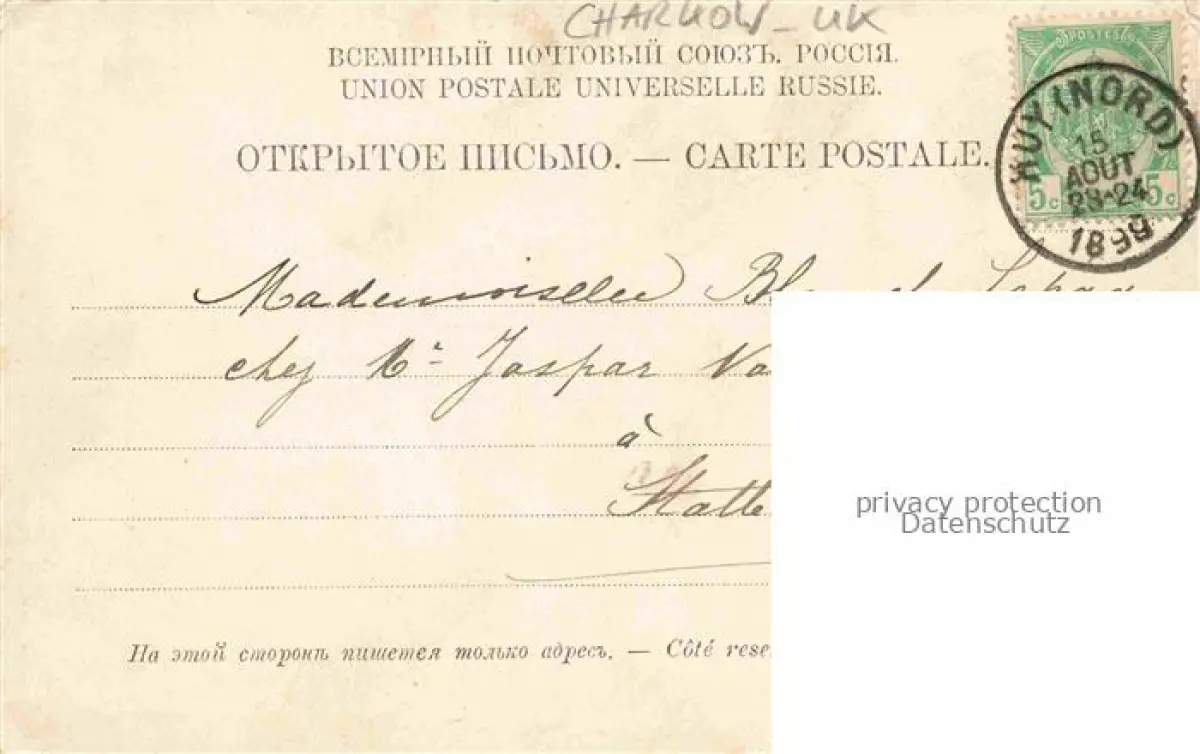 CHARKOW - UK
ВСЕМІРНЫЙ ПОЧТОВЫЙ СОЮЗЪ. РОССІЯ.
UNION POSTALE UNIVERSELLE RUSSIE.
ОТКРЫТОЕ ПИСЬМО. — CARTE POSTALE.
POSTES
5c 5c
HUY (NORD)
15
AOUT
23-24
1899
Mademoiselle
chez Mr Jaspar
à
Statte
На этой сторонѣ пишется только адресъ. — Côté rese
privacy protection
Datenschutz